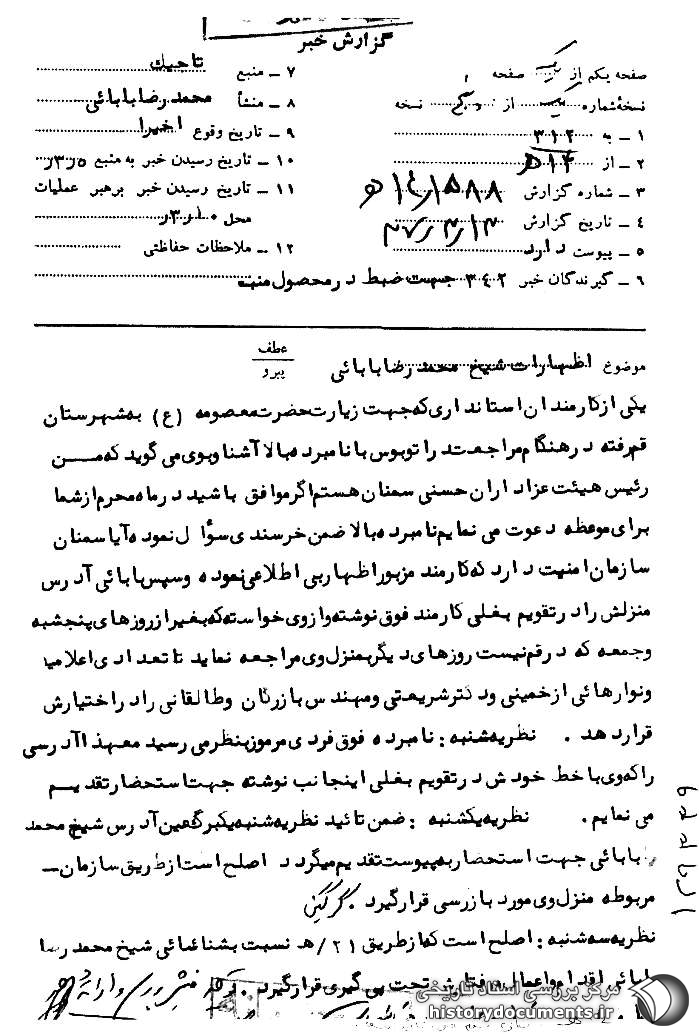 گزارش خبر
صفحه یکم از یک صفحه
نسخهٔ شماره یک از نسخه
۱ ــ به ۳۱۲
۲ ــ از ۱۴ ه‍
۳ ــ شماره گزارش
۴ ــ تاریخ گزارش
۵ ــ پیوست دارد
۶ ــ گیرندگان خبر ۳۴۲ جهت ضبط در محصول منبع
۷ ــ منبع تاجیک
۸ ــ منشأ محمد رضا بابائی
۹ ــ تاریخ وقوع اخیرا
۱۰ ــ تاریخ رسیدن خبر به منبع
۱۱ ــ تاریخ رسیدن خبر برهبر عملیات
محل
۱۲ ــ ملاحظات حفاظتی
موضوع اظهارات شیخ محمد رضا بابائی
عطف
پیرو
یکی از کارمندان استانداری که جهت زیارت حضرت معصومه (ع) به شهرستان
قم رفته در هنگام مراجعت در اتوبوس با نامبرده بالا آشنا و بوی می گوید که من
رئیس هیئت عزاداران حسنی سمنان هستم اگر موافق باشید در ماه محرم از شما
برای موعظه دعوت می نمایم نامبرده بالا ضمن خرسندی سؤال نموده آیا سمنان
سازمان امنیت دارد که کارمند مزبور اظهار بی اطلاعی نموده و سپس بابائی آدرس
منزلش را در تقویم بغلی کارمند فوق نوشته و از وی خواسته که بغیر از روزهای پنجشبه
و جمعه که در قم نیست روزهای دیگر بمنزل وی مراجعه نماید تا تعدادی اعلامیه
و نوارهائی از خمینی و دکتر شریعتی و مهندس بازرگان و طالقانی را در اختیارش
قرار دهد . نظریه شنبه : نامبرده فوق فردی مرموز بنظر می رسید معهذا آدرسی
را که وی با خط خودش در تقویم بغلی اینجانب نوشته جهت استحضار تقدیم
می نمایم . نظریه یکشنبه : ضمن تائید نظریه شنبه یکبرگ عین آدرس شیخ محمد
رضا بابائی جهت استحضار به پیوست تقدیم میگردد اصلح است از طریق سازمان ــ
مربوطه منزل وی مورد بازرسی قرار گیرد .
نظریه سه شنبه : اصلح است که از طریق ۲۱/ه‍ نسبت بشناسائی شیخ محمد رضا
بابائی اقدام و اعمال و رفتارش تحت پی گیری قرار گیرد .
مرکز بررسی اسناد تاریخی
historydocuments.ir